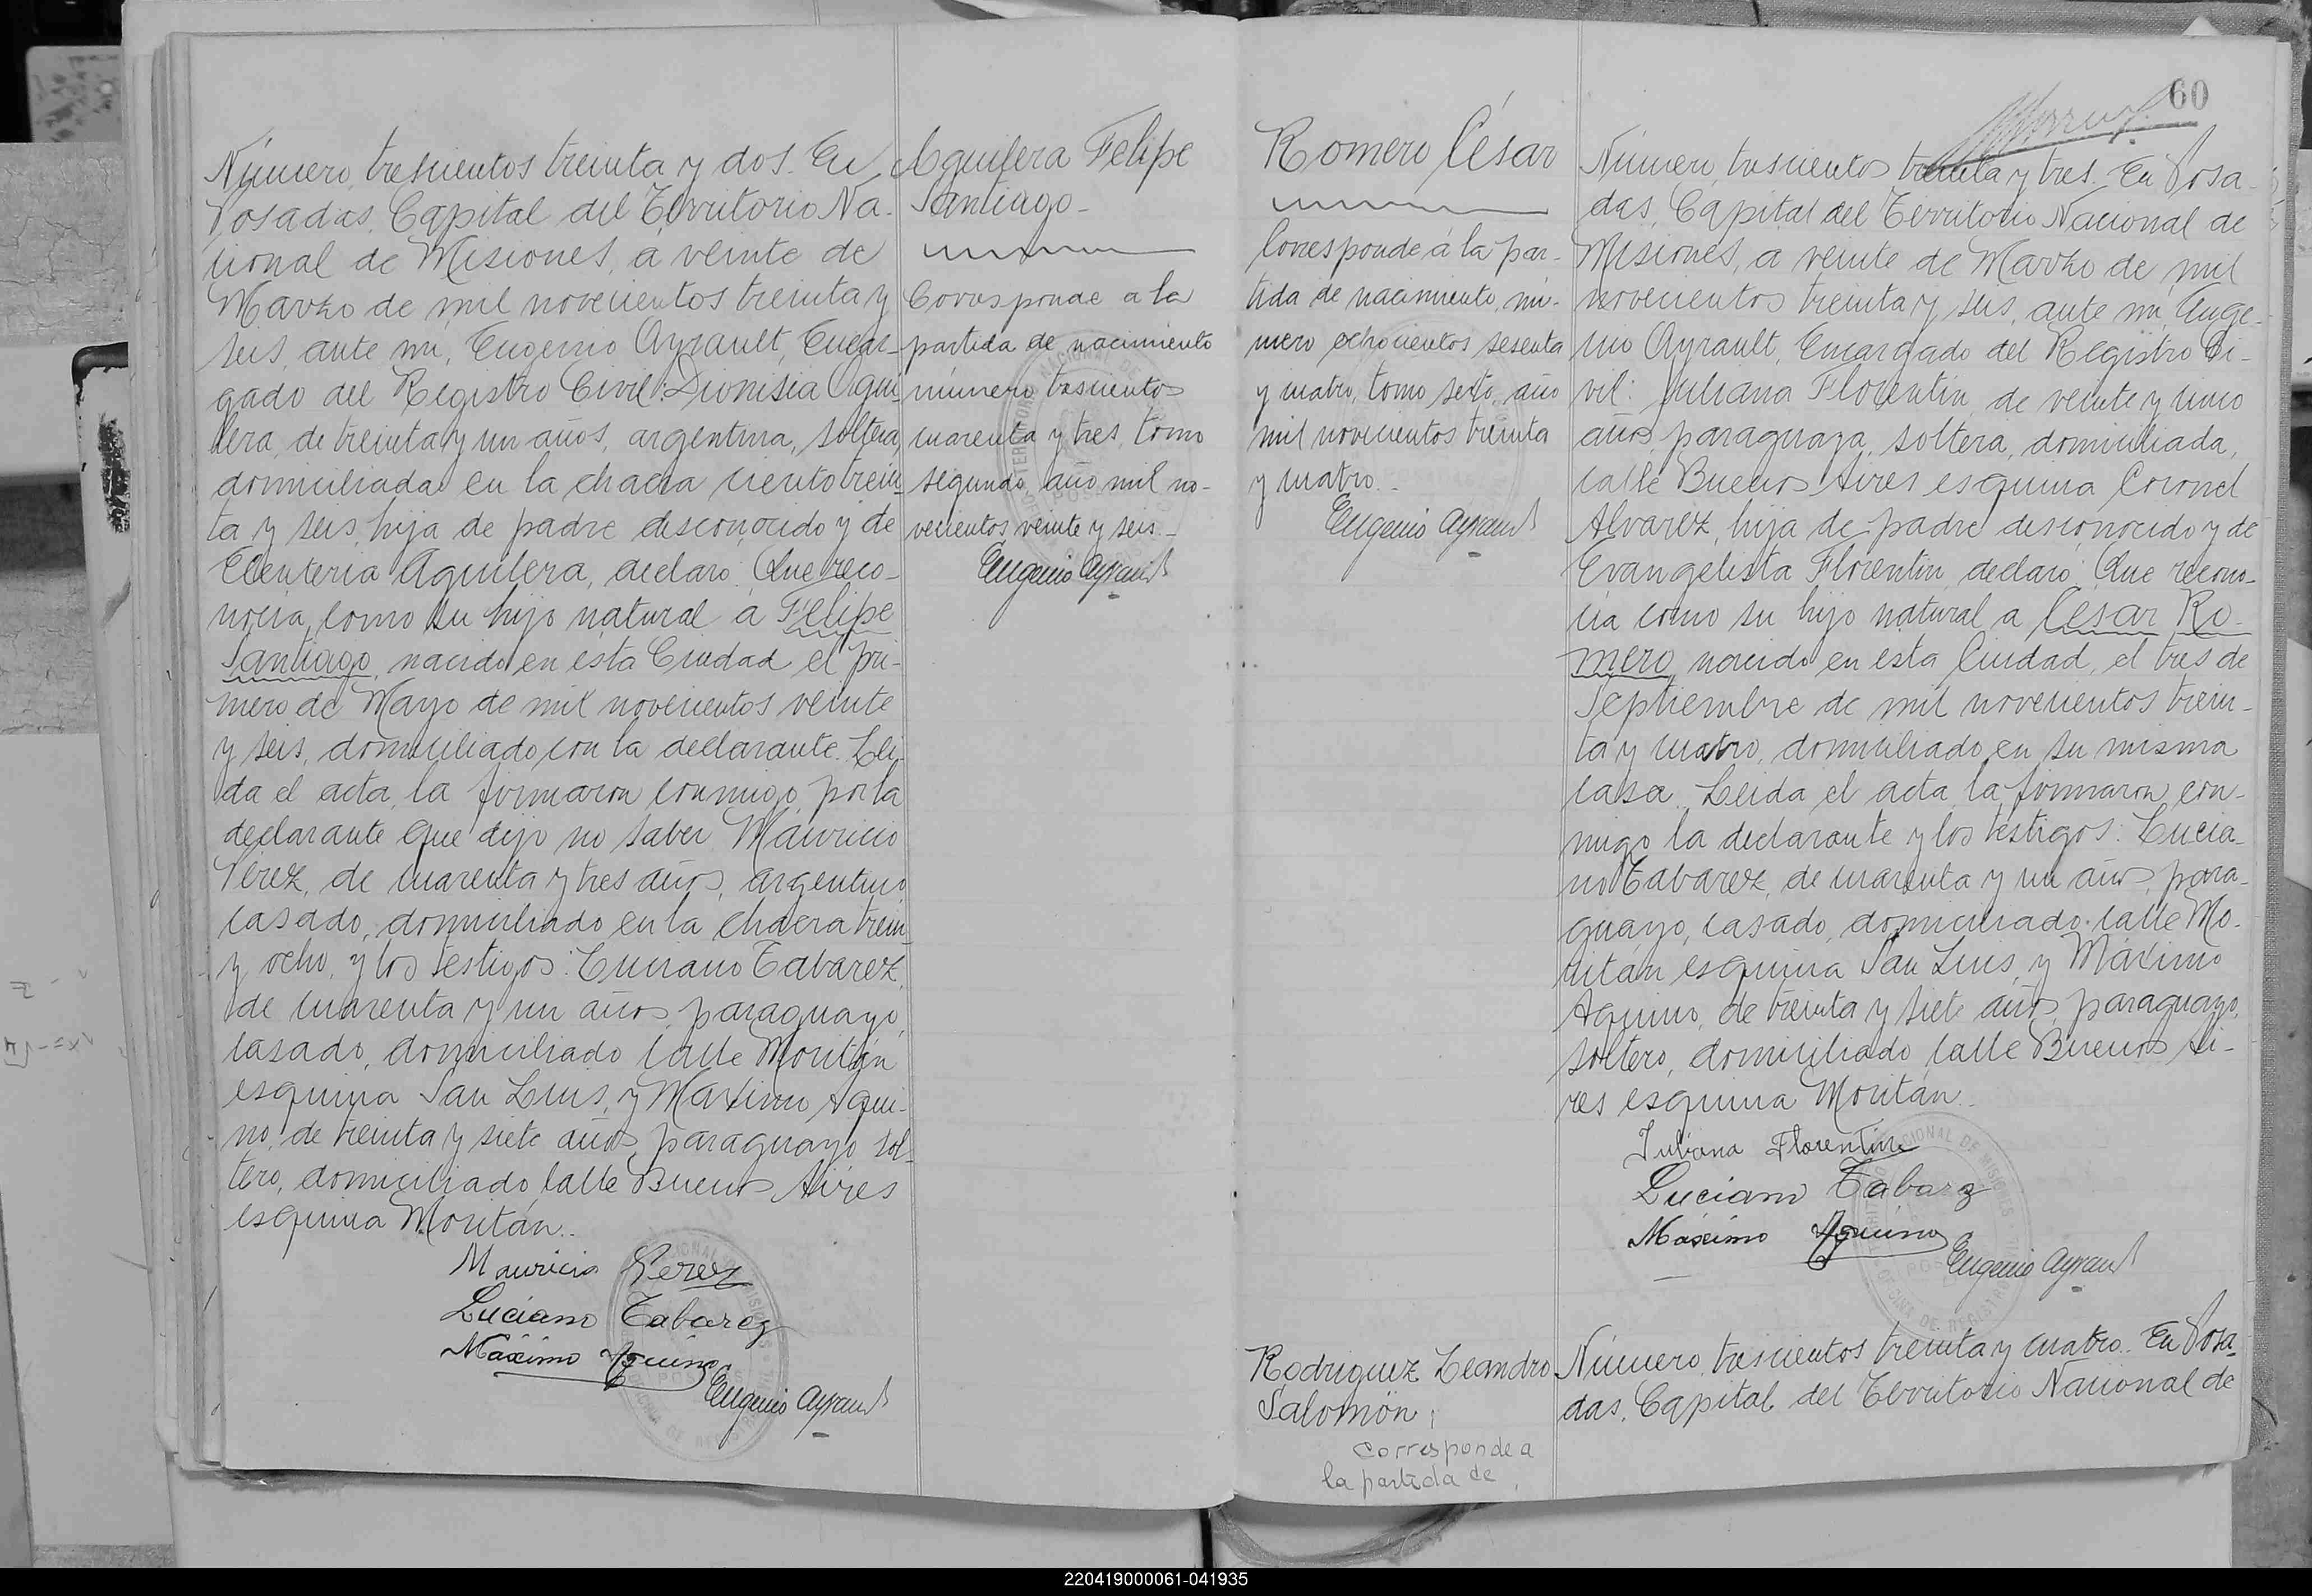 Número trescientos treinta y dos. En
Posadas, Capital del Territorio Na-
cional de Misiones, a veinte de
Marzo de mil novecientos treinta y
seis, ante mí, Eugenio Ayrault, Encar-
gado del Registro Civil: Dionisia Agui-
lera, de treinta y un años, argentina, soltera,
domiciliada en la chacra ciento trein-
ta y seis, hija de padre desconocido y de
Eleuteria Aguilera, declaró: Que reco-
nocía como su hijo natural a Felipe
Santiago, nacido en esta Ciudad el pri-
mero de Mayo de mil novecientos veinte
y seis, domiciliado con la declarante. Leí-
da el acta, la firmaron conmigo, por la
declarante que dijo no saber Mauricio
Pérez, de cuarenta y tres años, argentino
casado, domiciliado en la chacra trein-
y ocho, y los testigos: Luciano Tabarez,
de cuarenta y un años, paraguayo,
casado, domiciliado calle Moritán
esquina San Luis, y Máximo Aqui-
no, de treinta y siete años, paraguayo sol-
tero, domiciliado calle Buenos Aires
esquina Moritán.
Mauricio Perez
Luciano Tabarez
Máximo Aquino
Eugenio Ayrault
Aguilera Felipe
Santiago-
Corresponde a la
partida de nacimiento
número trescientos
cuarenta y tres, tomo
segundo, año mil no-
vecientos veinte y seis.-
Eugenio Ayrault
Romero César
Corresponde a la par-
tida de nacimiento, nú-
mero ochocientos sesenta
y cuatro, tomo sexto, año
mil novecientos treinta
y cuatro.-
Eugenio Ayrault
60
Número trescientos treinta y tres. En Posa-
das, Capital del Territorio Nacional de
Misiones, a veinte de Marzo de mil
novecientos treinta y seis, ante mí, Euge-
nio Ayrault, Encargado del Registro Ci-
vil: Juliana Florentín, de veinte y cinco
años, paraguaya, soltera, domiciliada,
calle Buenos Aires esquina Coronel
Alvarez, hija de padre desconocido y de
Evangelista Florentín, declaró: Que recono-
cía como su hijo natural a César Ro-
mero, nacido en esta Ciudad, el tres de
Septiembre de mil novecientos trein-
ta y cuatro, domiciliado en su misma
casa. Leída el acta, la firmaron con-
migo la declarante y los testigos: Lucia-
no Tabarez, de cuarenta y un años, para-
guayo, casado, domiciliado calle Mo-
ritán esquina San Luis, y Máximo
Aquino, de treinta y siete años, paraguayo,
soltero, domiciliado calle Buenos Ai-
res esquina Moritán.
Juliana Florentin
Luciano Tabarez
Máximo Aquino
Eugenio Ayrault
Rodriguez Leandro
Salomón
corresponde a
la partida de
Número trescientos treinta y cuatro. En Posa-
das, Capital del Territorio Nacional de
220419000061-041935